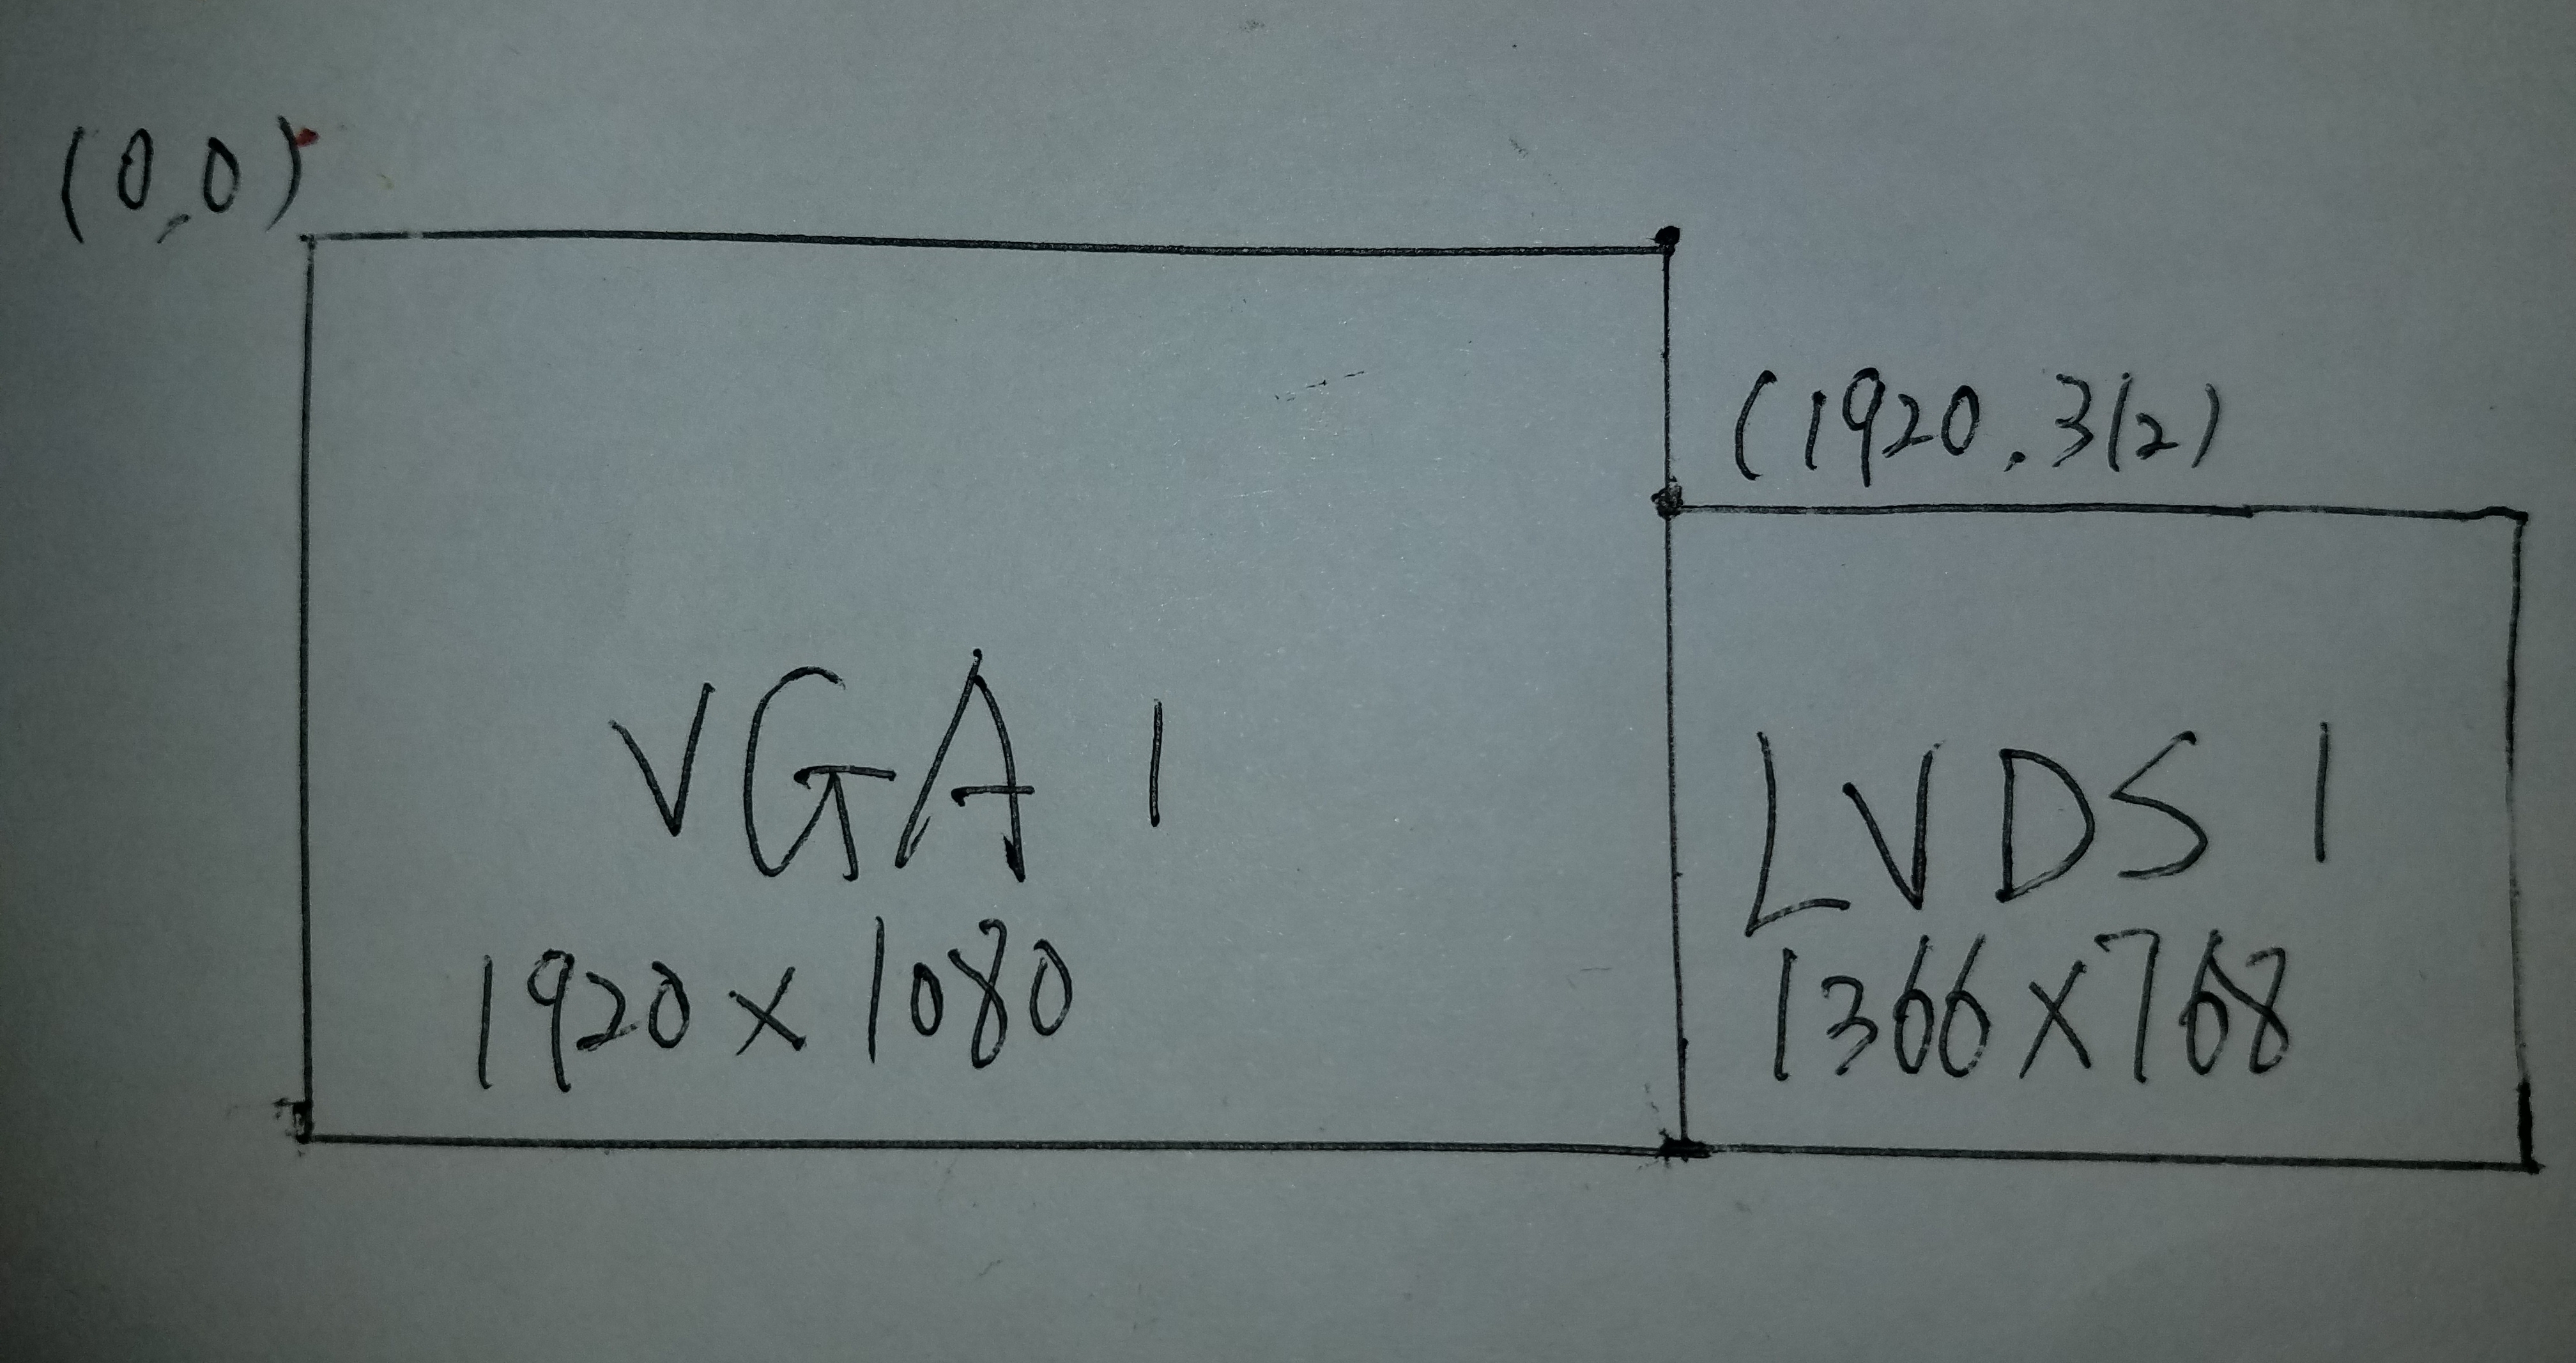 (0,0)
(1920.312)
VGA 1
1920 x 1080
LVDS 1
1366 x 768